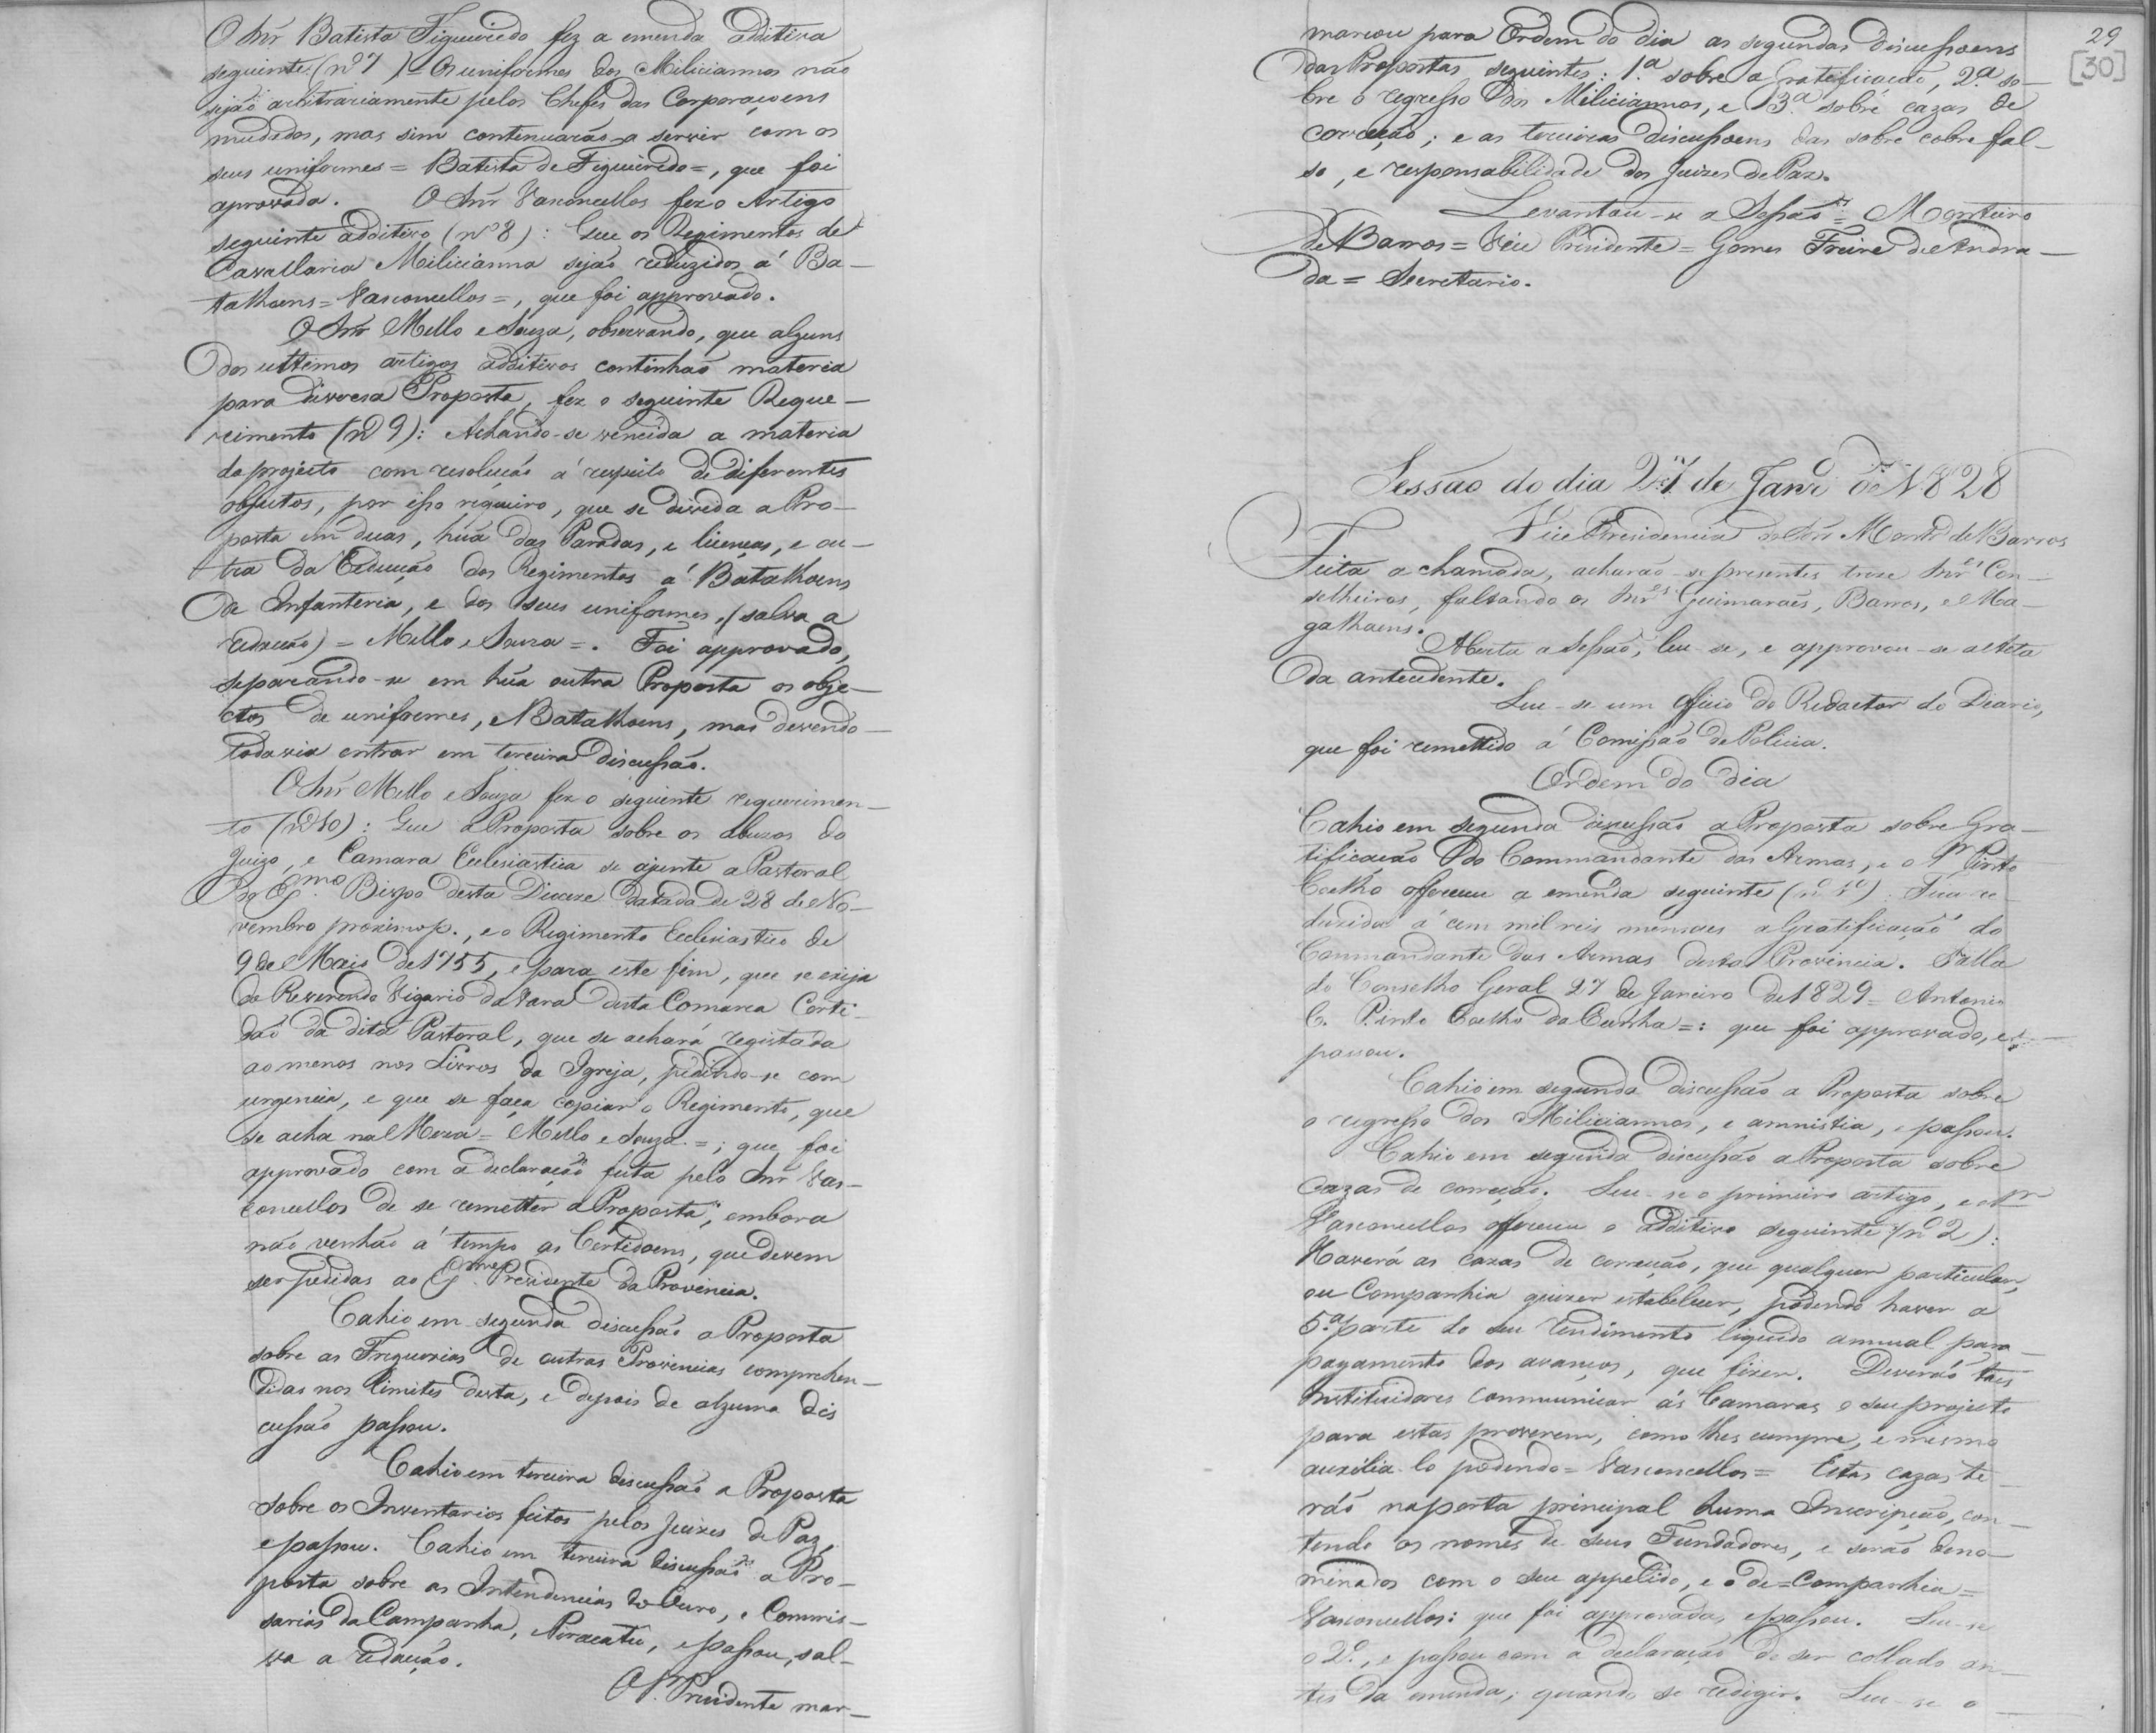 O Snr Batista Figueiredo fez a emenda additiva
seguinte (nº 7) = Os uniformes dos Milicianos não
sejão arbitrariamente pelos Chefes das Corporaçoens
mudados, mas sim continuarão a servir com os
seus uniformes = Batista de Figueiredo =, que foi
aprovada. O Snr Vasconcellos fez o Artigo
seguinte additivo (nº 8): Que os Regimentos de
Cavallaria Milicianna sejão reduzidos á Ba-
talhoens = Vasconcellos =, que foi approvado.
O Snr Mello e Souza, observando, que alguns
dos ultimos artigos additivos continhão materia
para diversa Proposta, fez o seguinte Reque-
rimento (nº 9): Achando-se vencida a materia
do projecto com resolução á respeito de diferentes
objectos, por isso riqueiro, que se divida a Pro-
posta em duas, húa das Paradas, e licenças, e ou-
tra da Reducção dos Regimentos á Batalhoens
de Infanteria, e dos seus uniformes, (salva a
redacção) = Mello e Souza =. Foi approvado,
separando-se em húa outra Proposta os obje-
ctos de uniformes, e Batalhoens, mas devendo
todavia entrar em terceira discussão.
O Snr Mello e Souza fez o seguinte requerimen-
to (nº 10): Que á Proposta sobre os abuzos do
Juizo, e Camara Ecclesiastica se ajunte a Pastoral
do Exmo Bispo desta Diocese datada de 28 de No-
vembro proximo p., e o Regimento Ecclesiastico de
9 de Maio de 1755, e para este fim, que se exija
do Reverendo Vigario da Vara desta Comarca Certi-
dão da dita Pastoral, que se achará registada
ao menos nos Livros da Igreja, pedindo-se com
urgencia, e que se faça copiar o Regimento, que
se acha na Meza = Mello e Souza =; que foi
approvado com a declaração feita pelo Snr Vas-
concellos de se remetter a Proposta, embora
não venhão á tempo as Certidoens, que devem
ser pedidas ao Exmo Presidente da Provincia.
Cahio em segunda discussão a Proposta
sobre as Freguezias de outras Provincias comprehen-
didas nos limites desta, e depois de alguma dis
cussão passou.
Cahio em terceira discussão a Proposta
sobre os Inventarios feitos pelos Juizes de Paz,
e passou. Cahio em terceira discussão a Pro-
posta sobre as Intendencias do Ouro, e Commis-
sarias da Campanha, e Paracatu, e passou, sal-
va a redacção.
O Sr. Presidente mar-
29
[30]
marcou para Ordem do dia as segundas discussoens
das Propostas seguintes: 1.ª sobre a Gratificação, 2.ª so-
bre o regresso dos Miliciannos, e 3.ª sobre cazas de
correcção; e as terceiras discussoens das sobre cobre fal-
so, e responsabilidade dos Juizes de Paz.
Levantou-se a Sessão = Monteiro
de Barros = Vice Presidente = Gomes Freire de Andra-
da = Secretario.
Sessão do dia 27 de Janrº de 1828
Vice Presidencia do Snr Montº de Barros
Feita a chamada, acharão-se presentes treze Snres Con-
selheiros, faltando os Snres Guimaraes, Barros, e Ma-
galhaens.
Aberta a Sessão, leu-se, e approvou-se a Acta
da antecedente.
Leu-se um officio do Redactor do Diario,
que foi remettido á Comissão de Policia.
Ordem do dia
Cahio em segunda discussão a Proposta sobre Gra-
tificação do Commandante das Armas, e o Sr Pinto
Coelho offereceu a emenda seguinte (nº 1º) Fica re-
duzida á cem mil reis mensaes a Gratificação do
Commandante das Armas desta Provincia. Salla
do Conselho Geral 27 de Janeiro de 1829 = Antonio
C. Pinto Coelho da Cunha =: que foi approvado, e
passou.
Cahio em segunda discussão a Proposta sobre
o regresso dos Miliciannos, e amnistia, e passou.
Cahio em segunda discussão a Proposta sobre
Cazas de correcção. Leu-se o primeiro artigo, e o Sr
Vasconcellos offereceu o additivo seguinte (nº 2):
Haverá as cazas de correcção, que qualquer particular,
ou Companhia quizer estabelecer, podendo haver a
5.ª parte do seu rendimento liquido annual para
pagamento dos avanços, que fizer. Deverão taes
Instituidores communicar ás Camaras o seu projecto
para estas proverem, como lhes cumpre, e mesmo
auxilia-lo podendo = Vasconcellos = Estas cazas te-
rão na porta principal huma Inscripção, con-
tendo os nomes de seus Fundadores, e serão deno-
minados com o seu appelido, e o de = Companhia =
Vasconcellos: que foi approvada, e passou. Leu-se
o 2º, e passou com a declaração de ser collado an-
tes da emenda, quando se redigir. Leu-se o